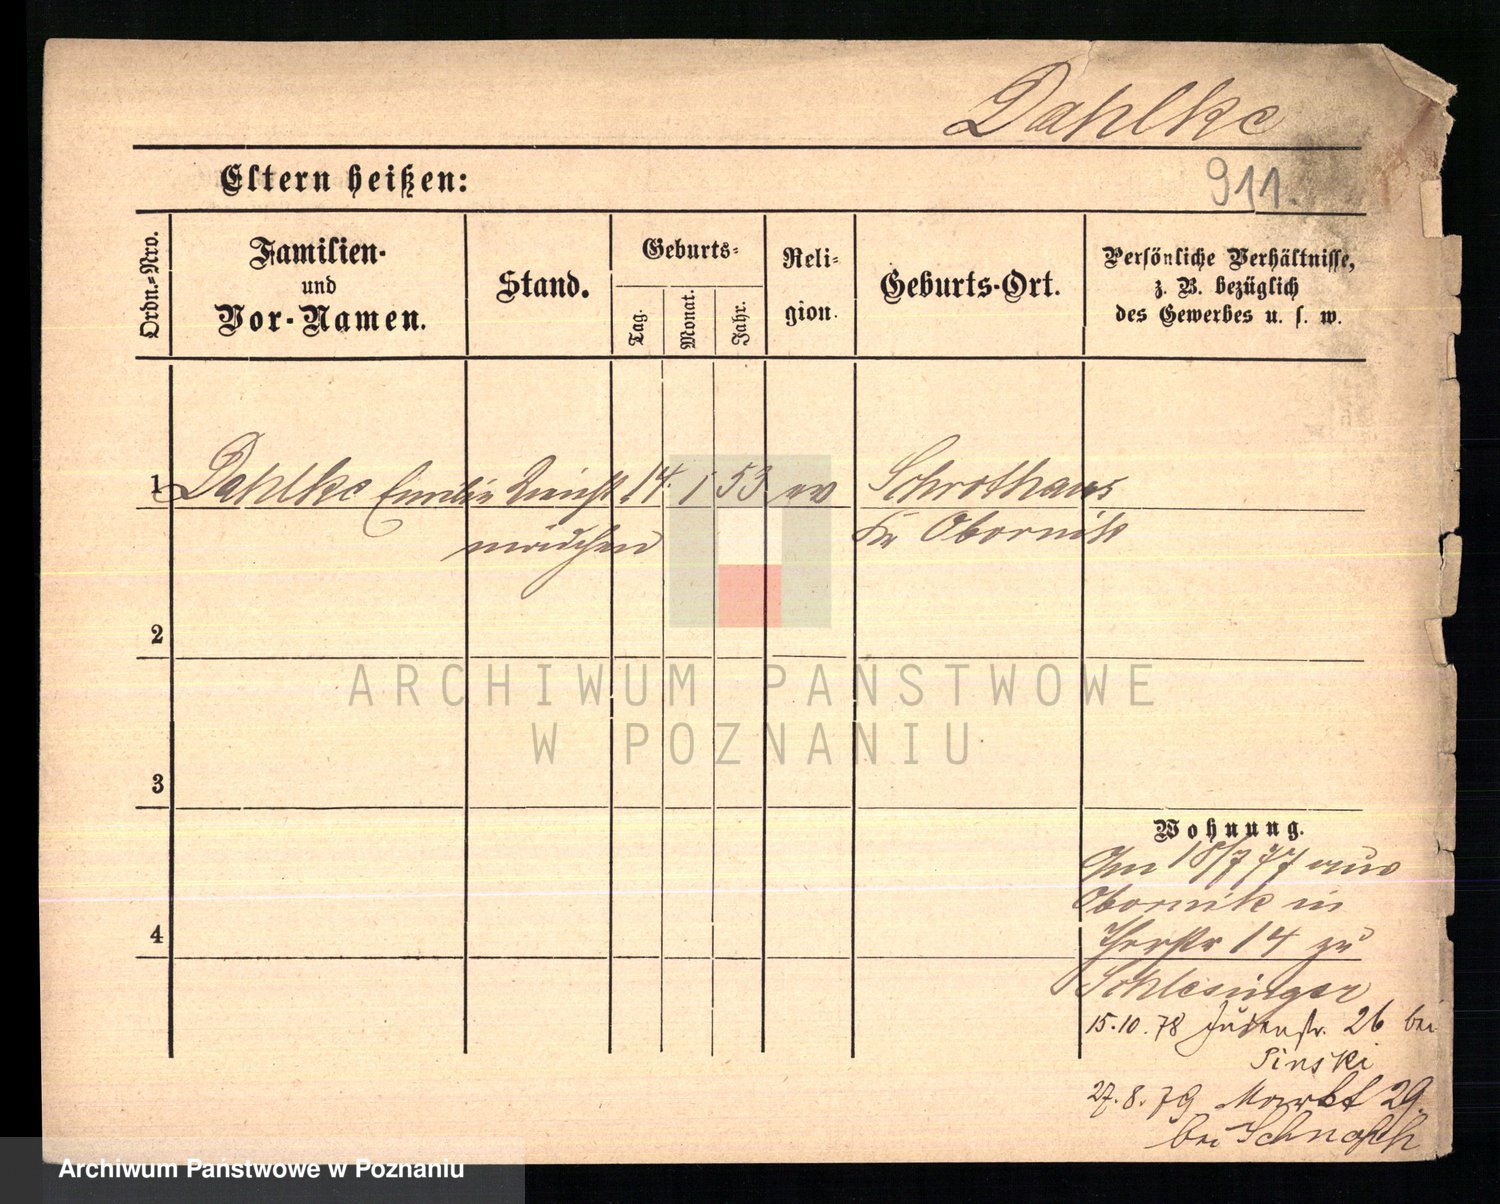 Dahlke
Eltern heißen:
911.
Ordn.-Nro.
Familien- und Vor-Namen.
Stand.
Geburts-
Tag.
Monat.
Jahr.
Reli-
gion.
Geburts-Ort.
Persönliche Verhältnisse,
z. B. bezüglich
des Gewerbes u. s. w.
1 Dahlke Emilie Dienst 14. 1 53 ev Schrothaus
mädchen Kr Obornik
2
ARCHIWUM PAŃSTWOWE
W POZNANIU
3
Wohnung.
Am 18/7 77 aus
Obornik in
14 zu
4
Schlesinger
15.10.78 Judenstr. 26 bei
Pinski
27.8.79 Markt 29.
bei
Archiwum Państwowe w Poznaniu